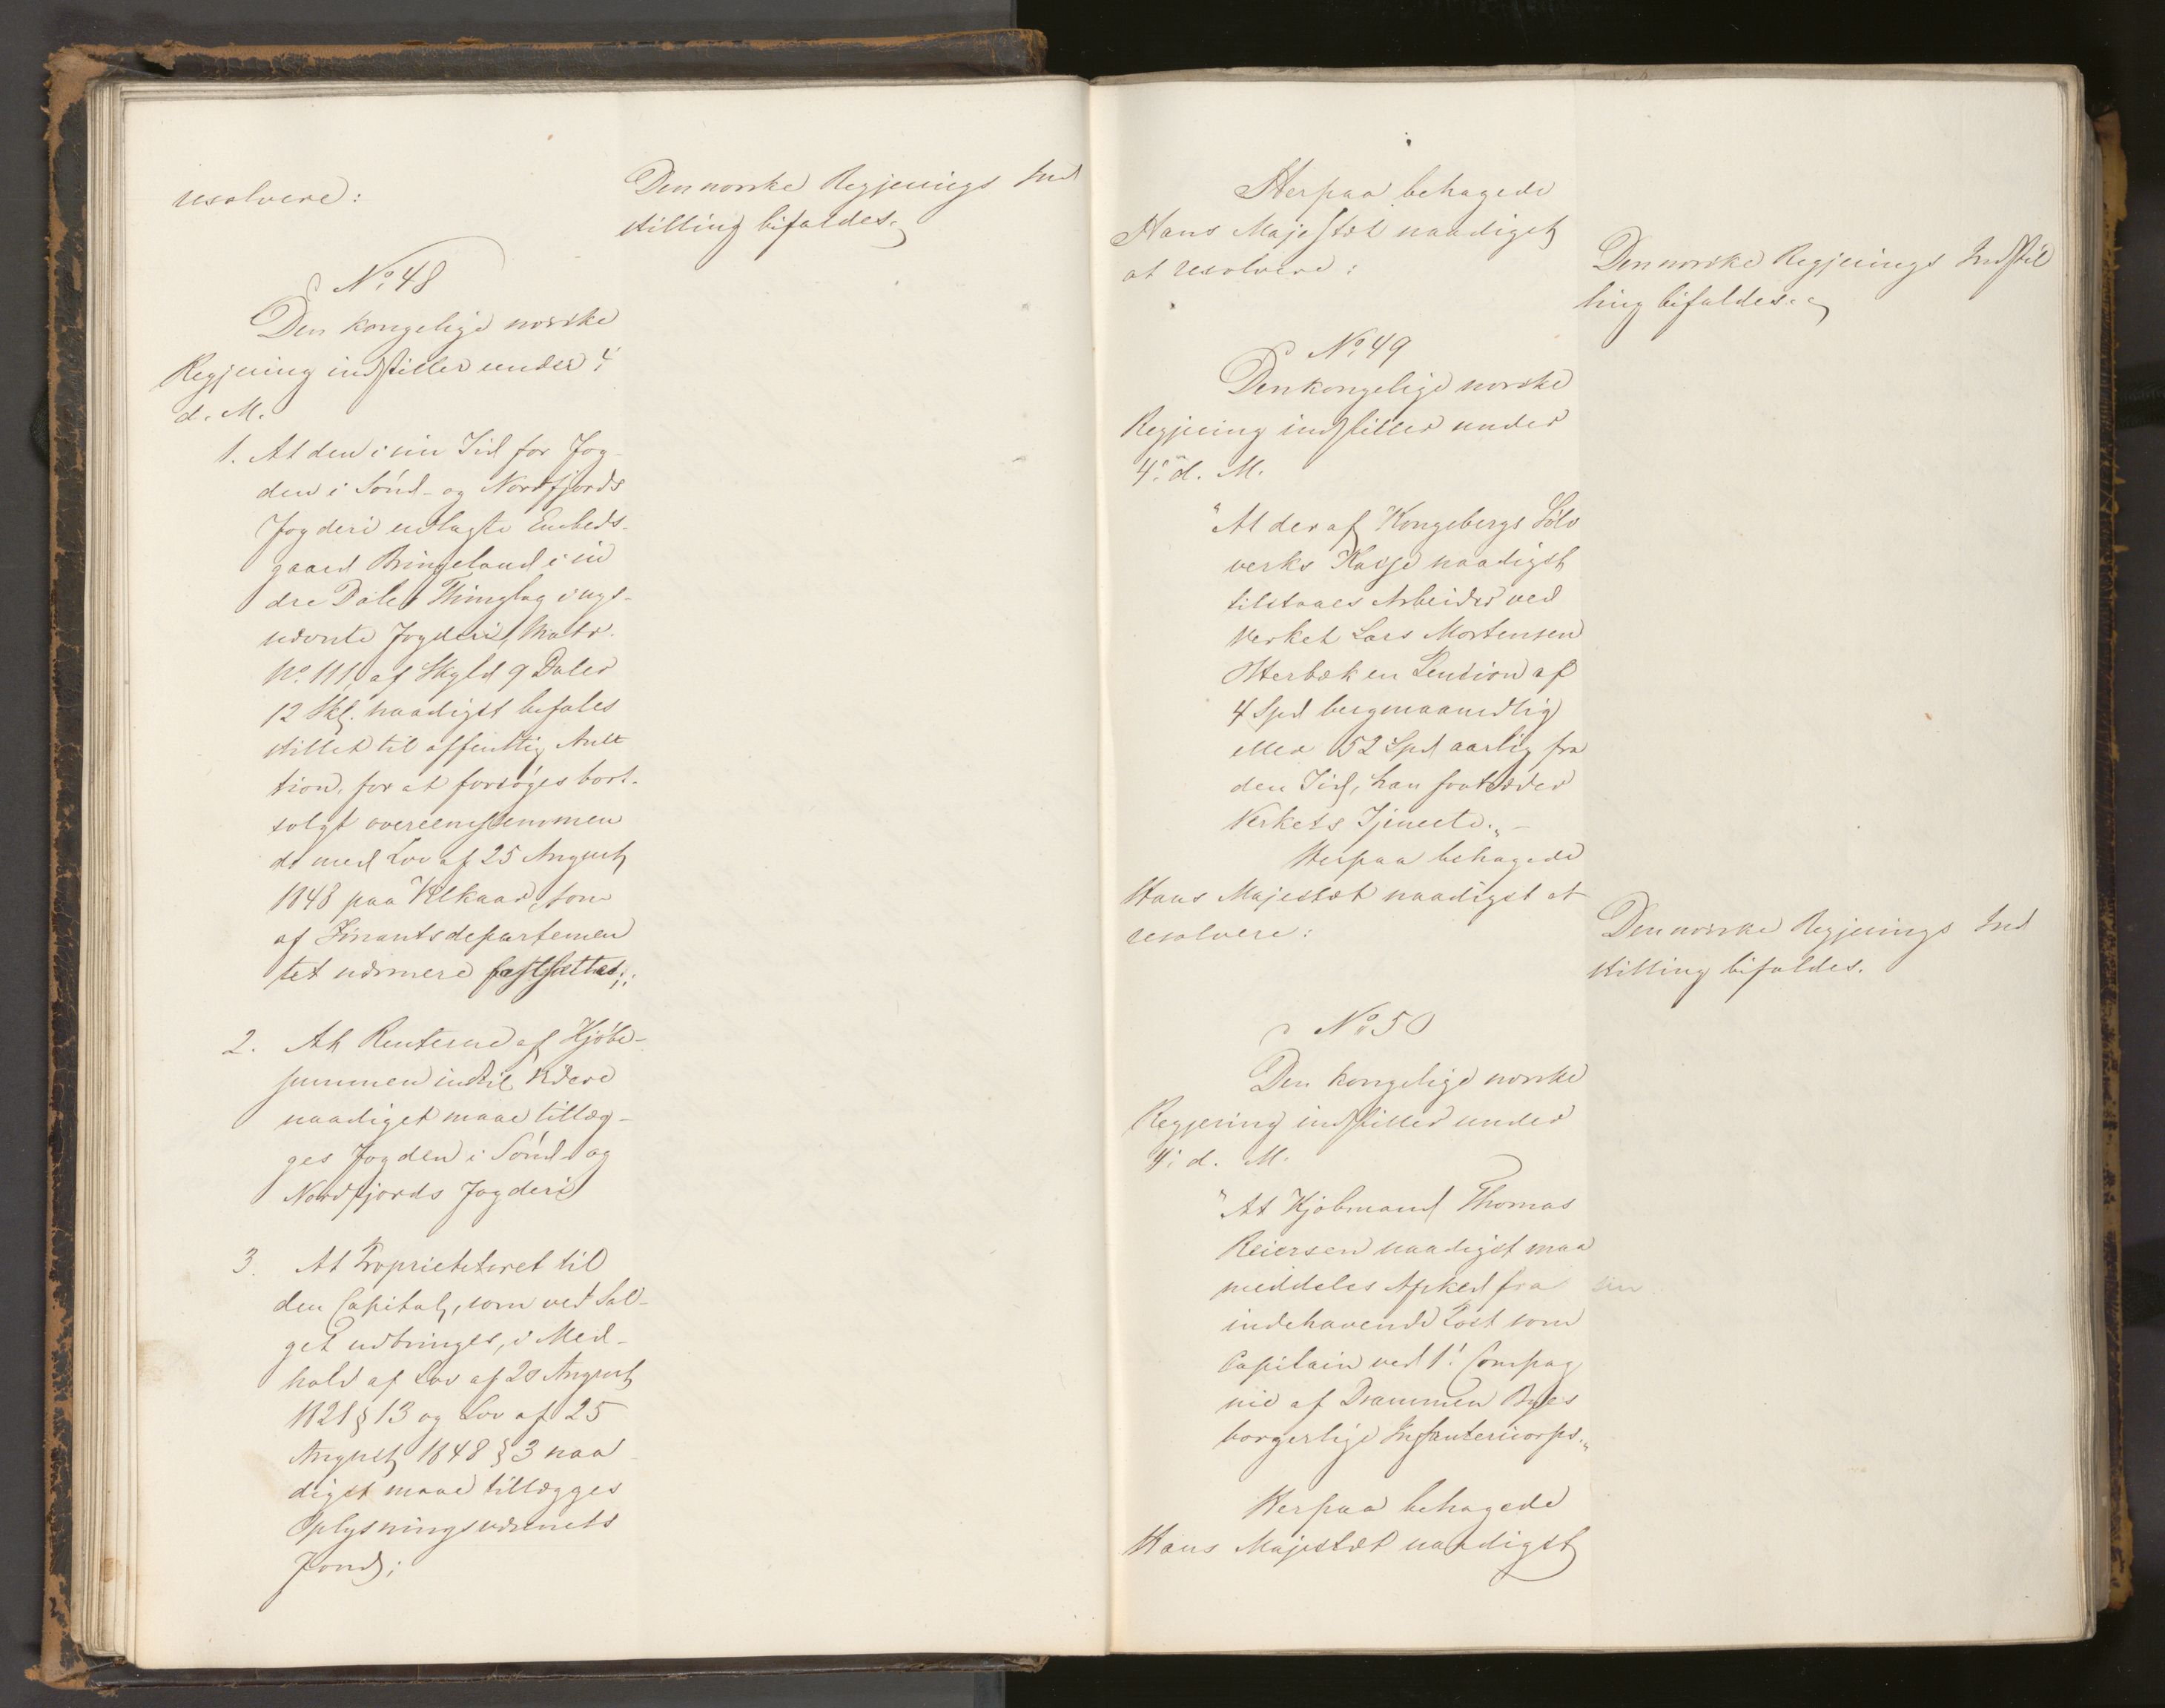 resolvere:
Den norske Regjerings Ind
stilling bifaldes.
No 48
Den kongelige norske
Regjering indstiller under 4.
d. M.
1. At den i sin Tid for Fog-
den i Sönd- og Nordfjords
Fogderi udlagte Embeds-
gaard Bringeland i in
dre Dals Thinglag i nys-
nævnte Fogderi, Matr.
No. 111, af Skyld 9 Daler
12 Skl. naadigst befales
stillet til offentlig Auk
tion, for at forsöges bort-
solgt overeensstemmen
de med Lov af 25 August
1848 paa Vilkaar, som
af Finantsdepartemen
tet nærmere fastsættes;
2. At Renterne af Kjöbe-
summen indtil videre
naadigst maae tillæg-
ges Fogden i Sönd- og
Nordfjords Fogderi
3. At Proprietetet til
den Capital, som ved Sal-
get udbringes, i Med-
hold af Lov af 20 August
1821 § 13 og Lov af 25
August 1848 § 3 naa
digst maae tillægges
Oplysningsvæsenets
Fond;
Herpaa behagede
Hans Majestæt naadigst
at resolvere:
Den norske Regjerings Indstil
ling bifaldes.
No. 49
Den kongelige norske
Regjering indstiller under
4. d. M.
"At der af Kongsbergs Sölv
verks Kasse naadigst
tilstaaes Arbeider ved
Verket Lars Mortensen
Otterbæk en Pension af
4 Spd bergmaanedlig
eller 52 Spd aarlig fra
den Tid, han fratræder
Verkets Tjeneste." -
Herpaa behagede
Hans Majestæt naadigst at
resolvere:
Den norske Regjerings Ind
stilling bifaldes.
No. 50
Den kongelige norske
Regjering indstiller under
4. d. M.
"At Kjöbmand Thomas
Reiersen naadigst maa
meddeles Afsked fra sin
indehavende Post som
Capitain ved 1. Compag
nie af Drammen Byes
borgerlige Infantericorps."
Herpaa behagede
Hans Majestæt naadigst